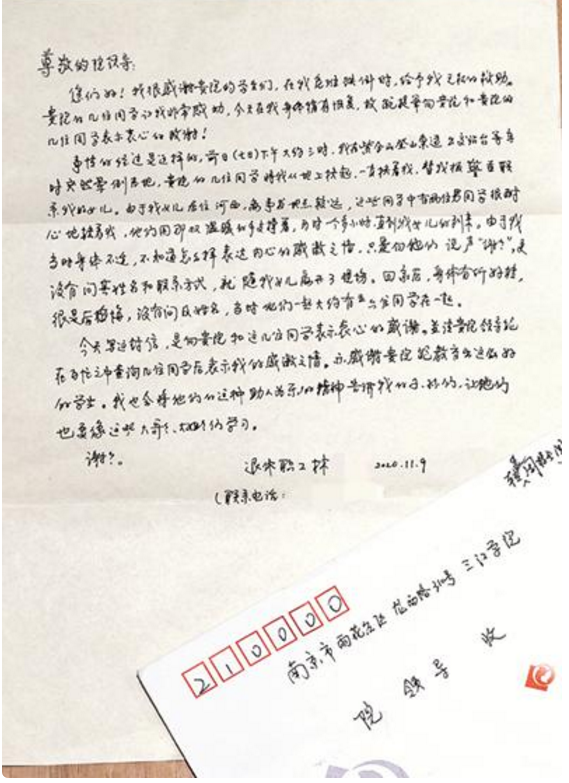 尊敬的院领导:
您们好!我很感谢贵院的学生们,在我危难时,给予我无私的救助。
贵院的几位同学让我非常感动,今天在我身体稍有恢复,故提笔向贵院和贵院的
几位同学表示衷心的感谢!
事情的经过是这样的,前日(七日)下午大约三时,我在紫金山登山东道出口站台等车
时突然晕倒在地,贵院的几位同学将我从地上扶起,一直扶着我,替我报警且联
系我的女儿。由于我女儿居住河西,离事发地点较远,这些同学中有两位男同学很耐
心地扶着我,他们用那双温暖的手支撑着,历时一个多小时,直到我女儿的到来。由于我
当时身体不适,不知道怎么样表达内心的感激之情,只是向他们说声“谢谢”,更
没有问其姓名和联系方式,就随我女儿离开了现场。回家后,身体有所好转,
很是后悔,没有问及姓名,当时他们一起大约有五六位同学在一起。
今天写这封信,是向贵院和这几位同学表示衷心的感谢。并请贵院领导能
在百忙之中查询几位同学后表示我的感激之情。亦感谢贵院能教育出这么好
的学生。我也会将他们的这种助人为乐的精神告诉我的子孙们,让他们
也要像这些大哥哥、大姐姐们学习。
谢谢。
退休职工 林 2020.11.9
(联系电话:
210000
南京市雨花台区龙西路310号 三江学院
院 领导 收